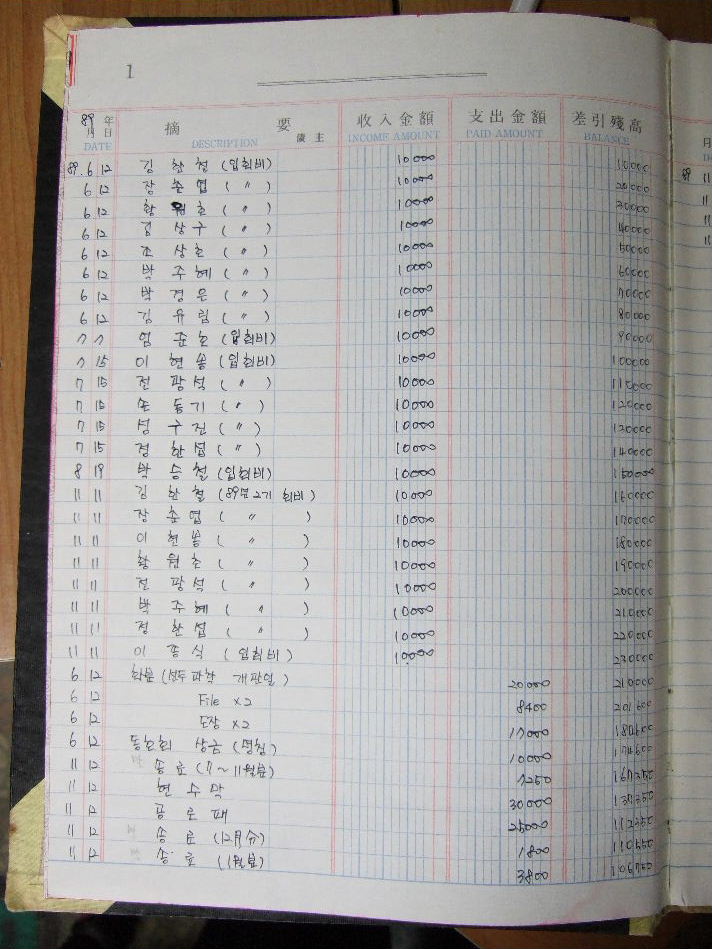 1
89 年 月 日 摘 要 歲主 收入金額 支出金額 差引殘高
DATE DESCRIPTION INCOME AMOUNT PAID AMOUNT BALANCE
89. 6 12 김 찬 철 (입회비) 10000 10000
6 12 장 춘 엽 ( 〃 ) 10000 20000
6 12 황 원 초 ( 〃 ) 10000 30000
6 12 김 상 구 ( 〃 ) 10000 40000
6 12 조 상 호 ( 〃 ) 10000 50000
6 12 박 주 혜 ( 〃 ) 10000 60000
6 12 박 경 은 ( 〃 ) 10000 70000
6 12 김 유 림 ( 〃 ) 10000 80000
7 7 엄 준 호 (입회비) 10000 90000
7 15 이 현 송 (입회비) 10000 100000
7 15 전 광 석 ( 〃 ) 10000 110000
7 15 손 동 기 ( 〃 ) 10000 120000
7 15 성 구 진 ( 〃 ) 10000 120000
7 15 정 한 섭 ( 〃 ) 10000 140000
8 19 박 승 철 (입회비) 10000 150000
11 11 김 찬 철 (89년 2기 회비) 10000 160000
11 11 장 춘 엽 ( 〃 ) 10000 170000
11 11 이 현 송 ( 〃 ) 10000 180000
11 11 황 원 초 ( 〃 ) 10000 190000
11 11 전 광 석 ( 〃 ) 10000 200000
11 11 박 주 혜 ( 〃 ) 10000 210000
11 11 정 한 섭 ( 〃 ) 10000 220000
11 11 이 종 식 (입회비) 10000 230000
6 12 화분 ( 개판일) 20000 210000
6 12 File ×2 8400 201600
6 12 도장 ×2 17000 184600
6 12 동호회 상금 (명칭) 10000 174600
11 12 송료 (7~11월분) 7250 167350
11 12 현수막 30000 137350
11 12 공로패 25000 112350
11 12 송료 (12月分) 1800 110550
11 12 송료 (1월분) 3800 106750
89 11
11
11
11